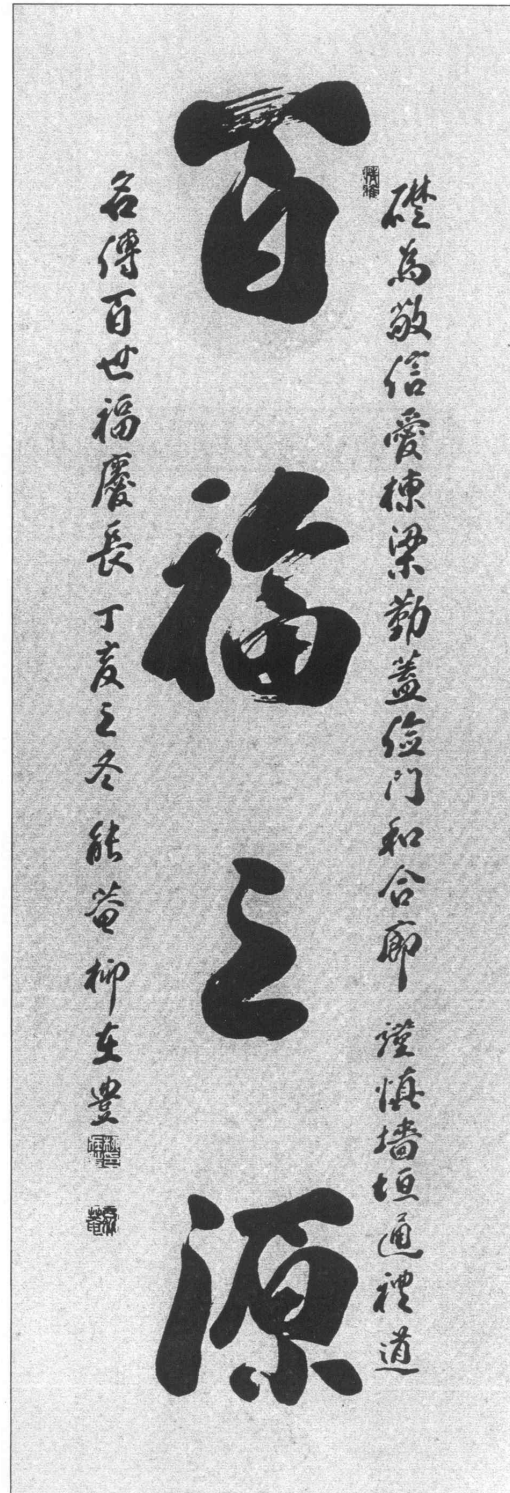 礎為敬信愛棟梁勤蓋儉門和合廊謹慎墻垣通禮道
百福之源
名傳百世福慶長丁亥之冬能菴柳在豊